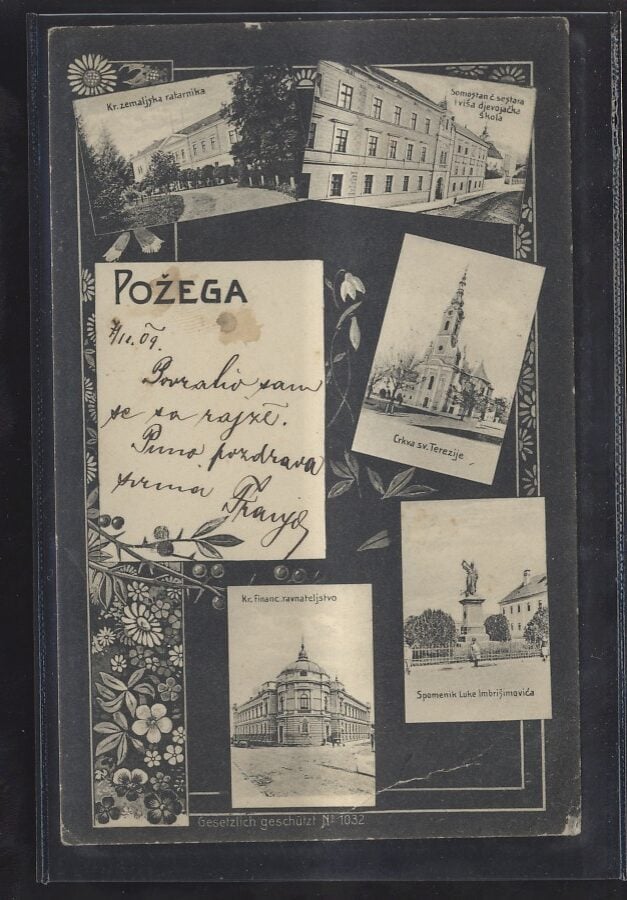 Kr. zemaljska ratarnika
Somostan č. sestara
i viša djevojačka
škola
POŽEGA
09.
Povratio sam
se sa rajze.
Puno pozdrava
svima Franjo
Crkva sv. Terezije
Spomenik Luke Imbrišimovića
Kr. Financ. ravnateljstvo
Gesetzlich geschützt No 1032